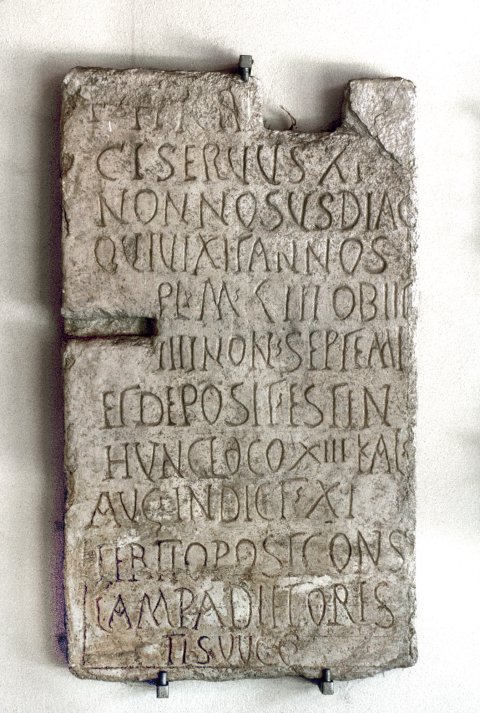 CISERVUSX
NONNOSUSDIAC
QUIVIXITANNOS
PL·M·CIIIOBIIT
IIIINON·SEPTEMB
ETDEPOSIT·ESTIN
HUNCLOCOXIIIKAL·
AUG·INDICT·XI
TERTIOPOSTCONS
LAMPADIETORES
TISVVCC